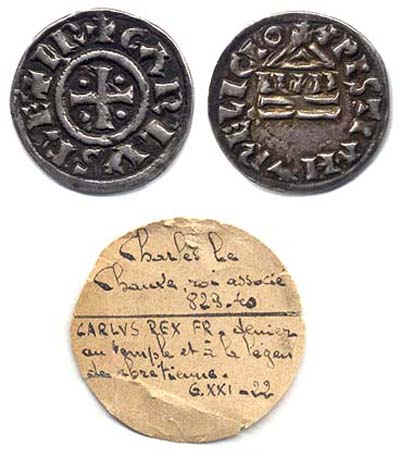 +CARLVS REX FR
+XPISTIANA RELIGIO
Charles le
Chauve, roi associé
829-40
CARLVS REX FR. denier
au temple et à la légen
de chrétienne.
G.XXI-22